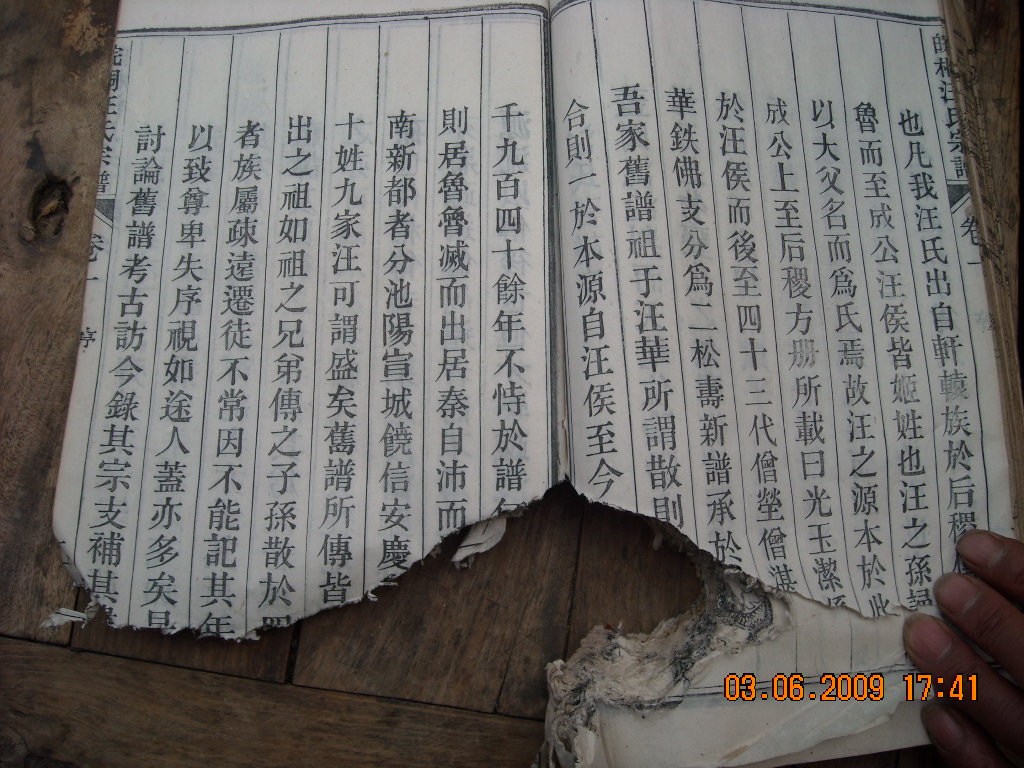 汪氏宗譜 卷一
也凡我汪氏出自軒轅族於后稷
魯而至成公汪侯皆姬姓也汪之孫
以大父名而爲氏焉故汪之源本於此
成公上至后稷方册所載曰光玉潔
於汪侯而後至四十三代僧塋僧湛
華鉄佛支分爲二松壽新譜承於
吾家舊譜祖于汪華所謂散則
合則一於本源自汪侯至今
千九百四十餘年不恃於譜
則居魯魯滅而出居秦自沛而
南新都者分池陽宣城饒信安慶
十姓九家汪可謂盛矣舊譜所傳皆
出之祖如祖之兄弟傳之子孫散於四
者族屬疎遠遷徒不常因不能記其年
以致尊卑失序視如途人蓋亦多矣
討論舊譜考古訪今錄其宗支補其
汪氏宗譜 卷一
03.06.2009 17:41